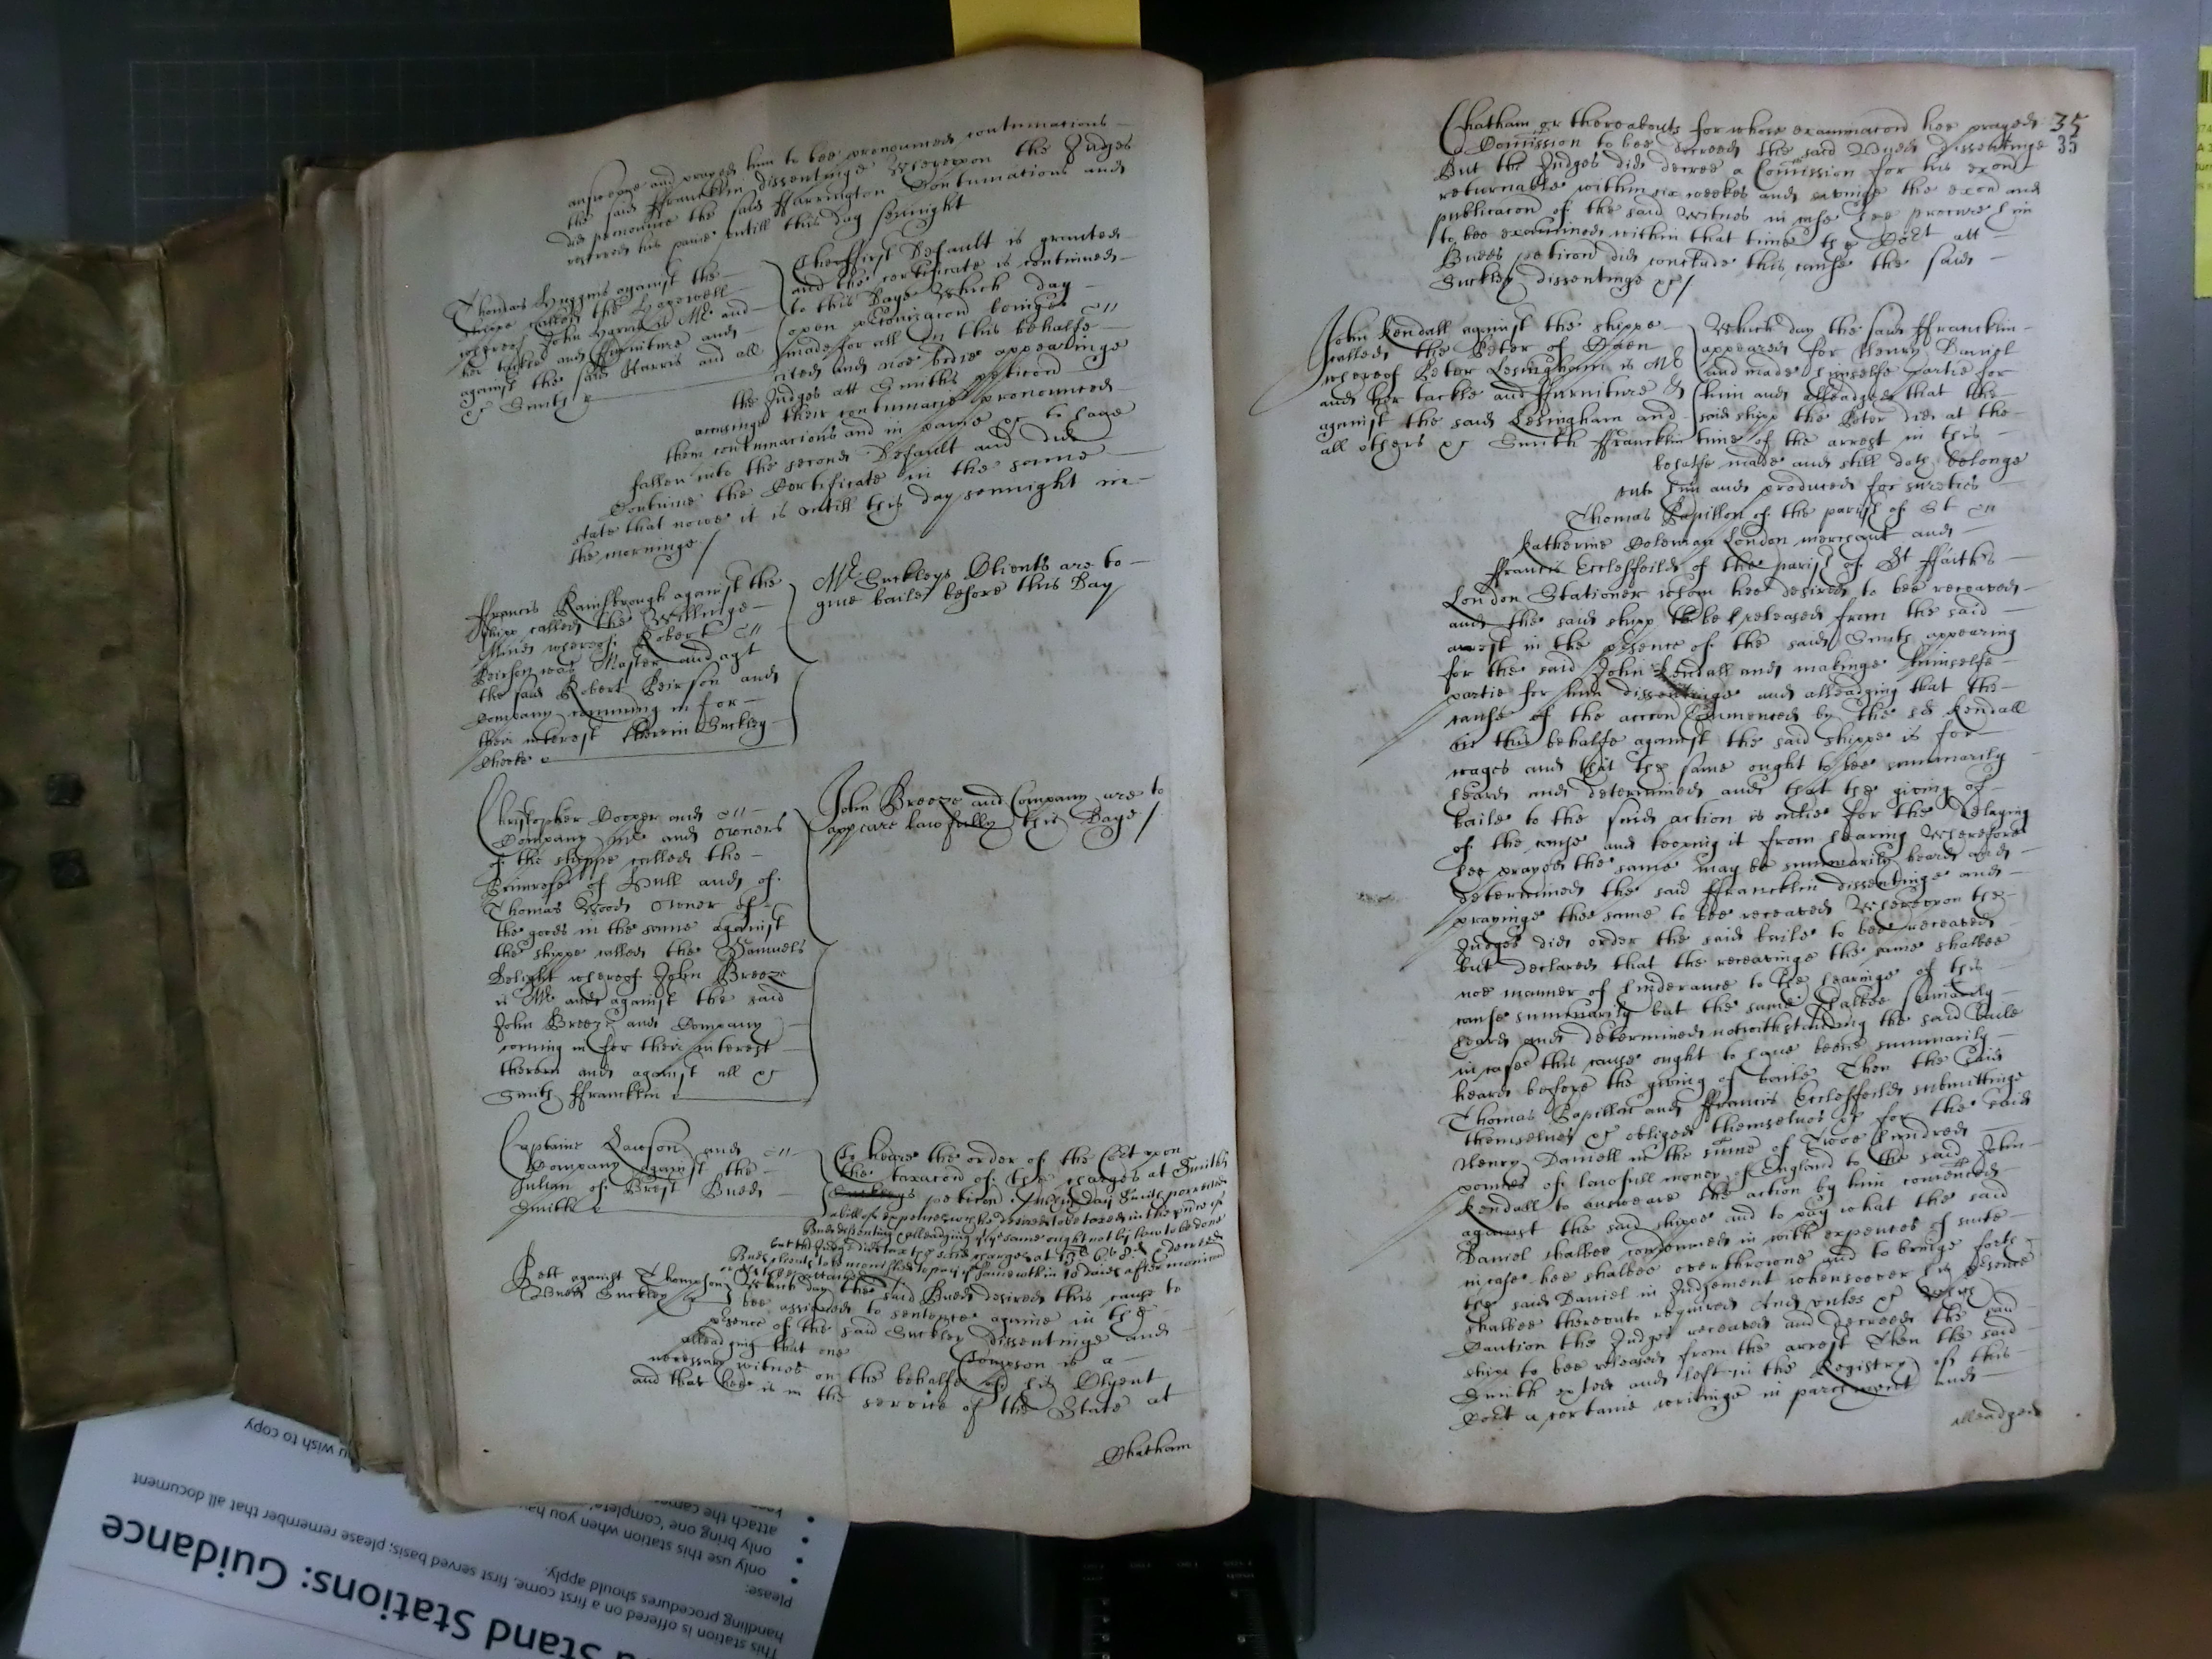 answeare and prayed him to bee pronounced contumacious
the said ffrancklin dissentinge Whereupon the Judges
did pronounce the said ffarrington Contumacious and
reserved his paine untill this day sennight
Thomas Huggins against the
shippe called the Hopewell
whereof John Harris is Mr and
her tackle and ffurniture and
against the said Harris and all
&c Smith
The ffirst Default is granted
and the certificate is continued
to this Daye Which day
upon proclamacon beinge
made for all In this behalfe
cited and noe bodie appearinge
the Judges att Smiths peticon
accusinge their contumacie pronounced
them contumacious and in paine &c to have
fallen into the second Default and did
Continue the Certificate in the same
state that nowe it is untill this day sennight in
the morninge /
ffrancis Rainsbrough against the
shipp called the Willinge
Minde whereof Robert
Peirson was Master and agt
the said Robert Peirson and
Company comming in for
their interest therein Suckley
Cheeke
Mr Suckleys Clients are to
give baile before this Day
Christopher Cooper and
Company Mr and owners
of the shippe called the
Primrose of Hull and of
Thomas Wood owner of
the goods in the same against
the shippe called the Samuels
Delight whereof John Breeze
is Mr and against the said
John Breeze and Company
coming in for their interest
therein and against all &c
Smith ffrancklin
John Breeze and Company are to
appeare lawfully this Daye /
Captaine Lawson and
Company against the
Julian of Brest Budd
Smith
To heare the order of the Cort upon
the taxacon of the charges at Smiths
Suckleys peticon. Which day Smith porrected
a bill of expences wch he desired to be taxed in the pnce of
Budd dissenting & alleadging yt ye same ought not by law to be done
but the Judges did tax the said charges at
Budds clients to be monished to pay ye same within 10 daies after monicon
Pett against Thompson
Budd Suckley
Which day the said Budd desired this cause to
bee assigned to sentence againe in the
presence of the said Suckley dissentinge and
alleadging that one Tompson is a
necessary witnes on the behalfe of his Clyent
and that hee is in the service of the State at
Chatham
35
35
Chatham or thereabouts for whose examinacon hee prayed
Comission to bee decreed the said Budd dissentinge
But the Judges did decree a Comission for his exon
returnable within six weekes and savinge the exon and
publicacon of the said Witnes in case hee procure him
to bee examined within that time the Cort att
Budds peticon did conclude this cause the said
Suckley dissentinge &c /
John Kendall against the shippe
called the Peter of
whereof Peter Lesingham is Mr
and her tackle and ffurniture &
against the said Lesingham and
all others &c Smith ffrancklin
Which day the said ffrancklin
appeared for Henry Daniel
and made himselfe partie for
him and alleadged that the
said shipp the Peter did at the
time of the arrest in this
behalfe made and still doth belonge
unto him and produced for sureties
Thomas Papillon of the parish of St
Katherine Coleman London merchant and
ffrancis Ecclesfeild of the parish of St ffaiths
London Stationer whom hee desired to bee received
and the said shipp to be released from the said
arrest in the presence of the said Smith appearing
for the said John Kendall and makinge himselfe
partie for him dissentinge and alleadging that the
cause of the accon Commenced by the sd Kendall
in this behalfe against the said shippe is for
wages and that the same ought to bee summarily
heard and determined and that the giving of
baile to the said action is onlie for the delaying
of the cause and keeping it from hearing Wherefore
hee prayed the same may be summarily heard and
determined the said ffrancklin dissentinge and
prayinge the same to bee received Whereupon the
Judges did order the said baile to bee received
but declared that the receavinge the same shalbee
noe manner of hinderance to the hearinge of this
cause summarily but the same shalbee summarily
heard and determined notwithstanding the said Baile
in case this cause ought to have beene summarily
heard before the giving of baile Then the said
Thomas Papillon and ffrancis Ecclesfeild submittinge
themselves &c obliged themselves &c for the said
Henry Daniell in the sume of Twoe hundred
pounds of lawfull money of England to the said John
Kendall to answeare the action by him comenced
against the said shippe and to pay what the said
Daniel shalbee condemned in with expences of suite
in case hee shalbee overthrowne and to bringe forth
the said Daniel in Judgement whensoever his presence
shalbee thereunto required And unles &c Which
Caution the Judges received and decreed the said
shipp to bee released from the arrest Then the said
Smith exhted and left in the Registry of this
Cort a certaine writinge in parchment and
alleadged
u wish to copy
d Stand Stations: Guidance
This station is offered on a first come, first served basis; please remember that all document
handling procedures should apply.
Please:
only use this station when you hav
only bring one 'complete'
attach the came